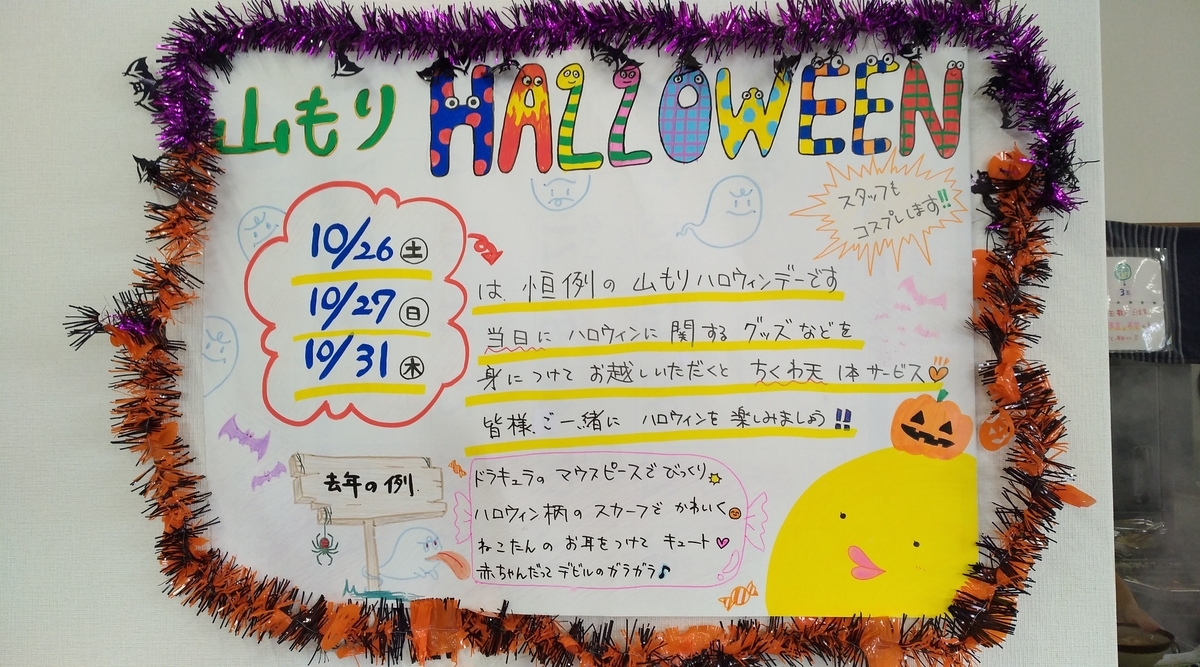 山もり HALLOWEEN
スタッフも
コスプレします!!
10/26 土
10/27 日
10/31 木
は、恒例の 山もりハロウィンデーです
当日に ハロウィンに 関する グッズなどを
身につけて お越しいただくと ちくわ天 1本サービス
皆様、ご一緒に ハロウィンを 楽しみましょう!!
去年の例
ドラキュラの マウスピースで びっくり
ハロウィン柄の スカーフで かわいく
ねこたんの お耳をつけて キュート
赤ちゃんだって デビルのガラガラ♪